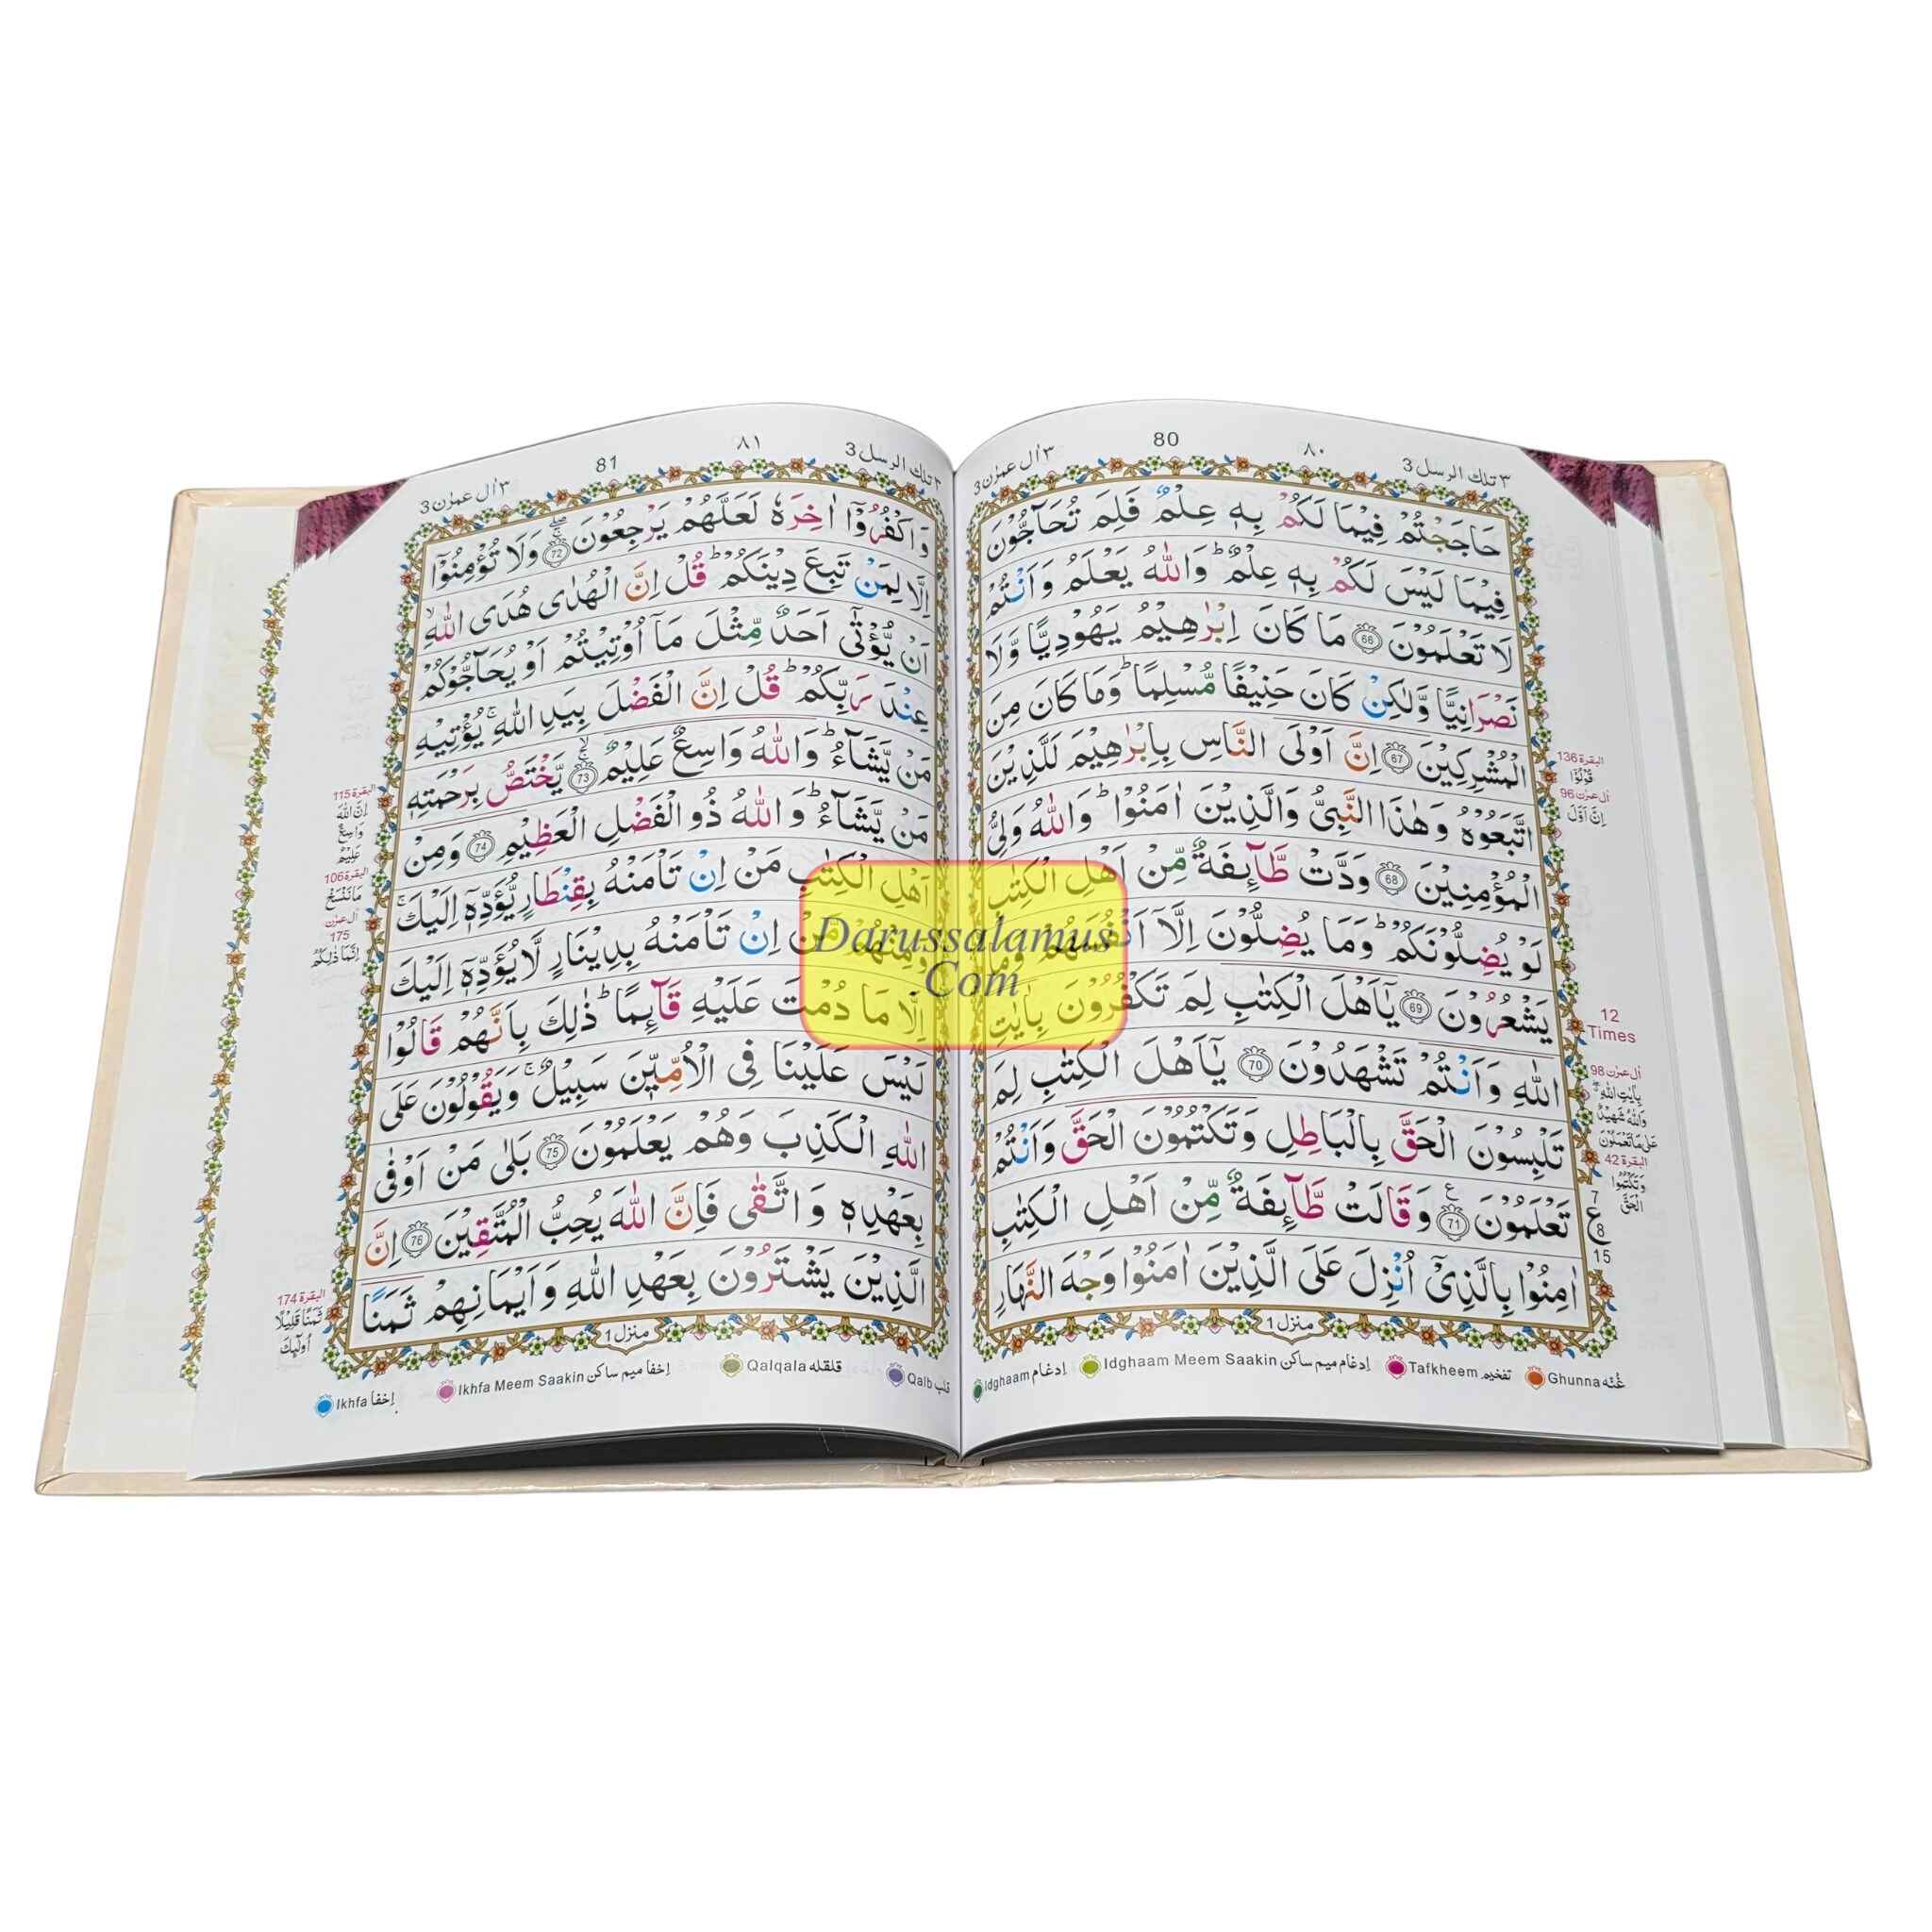 ٣ تلك الرسل 3
٨٠
80
٣ اٰل عمرٰن 3
حَاجَجْتُمْ فِيْمَا لَكُمْ بِهٖ عِلْمٌ فَلِمَ تُحَآجُّوْنَ
فِيْمَا لَيْسَ لَكُمْ بِهٖ عِلْمٌ ؕ وَاللّٰهُ يَعْلَمُ وَاَنْتُمْ
لَا تَعْلَمُوْنَ 66 مَا كَانَ اِبْرٰهِيْمُ يَهُوْدِيًّا وَّلَا
نَصْرَانِيًّا وَّلٰكِنْ كَانَ حَنِيْفًا مُّسْلِمًا ؕ وَمَا كَانَ مِنَ
الْمُشْرِكِيْنَ 67 اِنَّ اَوْلَى النَّاسِ بِاِبْرٰهِيْمَ لَلَّذِيْنَ
اتَّبَعُوْهُ وَهٰذَا النَّبِىُّ وَالَّذِيْنَ اٰمَنُوْا ؕ وَاللّٰهُ وَلِىُّ
الْمُؤْمِنِيْنَ 68 وَدَّتْ طَّآئِفَةٌ مِّنْ اَهْلِ الْكِتٰبِ
لَوْ يُضِلُّوْنَكُمْ ؕ وَمَا يُضِلُّوْنَ اِلَّآ اَنْفُسَهُمْ وَمَا
يَشْعُرُوْنَ 69 يٰۤاَهْلَ الْكِتٰبِ لِمَ تَكْفُرُوْنَ بِاٰيٰتِ
اللّٰهِ وَاَنْتُمْ تَشْهَدُوْنَ 70 يٰۤاَهْلَ الْكِتٰبِ لِمَ
تَلْبِسُوْنَ الْحَقَّ بِالْبَاطِلِ وَتَكْتُمُوْنَ الْحَقَّ وَاَنْتُمْ
تَعْلَمُوْنَ 71 وَقَالَتْ طَّآئِفَةٌ مِّنْ اَهْلِ الْكِتٰبِ
اٰمِنُوْا بِالَّذِىْۤ اُنْزِلَ عَلَى الَّذِيْنَ اٰمَنُوْا وَجْهَ النَّهَارِ
منزل 1
البقرة 136
قُوْلُوْٓا
اٰل عمرٰن 96
اِنَّ اَوَّلَ
12
Times
اٰل عمرٰن 98
بِاٰيٰتِ اللّٰهِ
وَاللّٰهُ شَهِيْدٌ
عَلٰى مَا تَعْمَلُوْنَ
البقرة 42
وَتَكْتُمُوا
الْحَقَّ
7
ع
8
15
Ghunna غُنّه
Tafkheem تفخيم
Idghaam Meem Saakin إدغام ميم ساكن
Idghaam إدغام
٣ تلك الرسل 3
٨١
81
٣ اٰل عمرٰن 3
وَاكْفُرُوْۤا اٰخِرَهٗ لَعَلَّهُمْ يَرْجِعُوْنَ 72 وَلَا تُؤْمِنُوْۤا
اِلَّا لِمَنْ تَبِعَ دِيْنَكُمْ ؕ قُلْ اِنَّ الْهُدٰى هُدَى اللّٰهِ ۙ
اَنْ يُّؤْتٰٓى اَحَدٌ مِّثْلَ مَآ اُوْتِيْتُمْ اَوْ يُحَآجُّوْكُمْ
عِنْدَ رَبِّكُمْ ؕ قُلْ اِنَّ الْفَضْلَ بِيَدِ اللّٰهِ ۚ يُؤْتِيْهِ
مَنْ يَّشَآءُ ؕ وَاللّٰهُ وَاسِعٌ عَلِيْمٌ 73 يَّخْتَصُّ بِرَحْمَتِهٖ
مَنْ يَّشَآءُ ؕ وَاللّٰهُ ذُو الْفَضْلِ الْعَظِيْمِ 74 وَمِنْ
اَهْلِ الْكِتٰبِ مَنْ اِنْ تَاْمَنْهُ بِقِنْطَارٍ يُّؤَدِّهٖٓ اِلَيْكَ ۚ
وَمِنْهُمْ مَّنْ اِنْ تَاْمَنْهُ بِدِيْنَارٍ لَّا يُؤَدِّهٖٓ اِلَيْكَ
اِلَّا مَا دُمْتَ عَلَيْهِ قَآئِمًا ؕ ذٰلِكَ بِاَنَّهُمْ قَالُوْا
لَيْسَ عَلَيْنَا فِى الْاُمِّيّٖنَ سَبِيْلٌ ۚ وَيَقُوْلُوْنَ عَلَى
اللّٰهِ الْكَذِبَ وَهُمْ يَعْلَمُوْنَ 75 بَلٰى مَنْ اَوْفٰى
بِعَهْدِهٖ وَاتَّقٰى فَاِنَّ اللّٰهَ يُحِبُّ الْمُتَّقِيْنَ 76 اِنَّ
الَّذِيْنَ يَشْتَرُوْنَ بِعَهْدِ اللّٰهِ وَاَيْمَانِهِمْ ثَمَنًا
منزل 1
البقرة 115
اِنَّ اللّٰهَ
وَاسِعٌ
عَلِيْمٌ
البقرة 106
مَا نَنْسَخْ
اٰل عمرٰن
175
اِنَّمَا ذٰلِكُمُ
البقرة 174
ثَمَنًا قَلِيْلًا
اُولٰٓئِكَ
Qalb قلب
Qalqala قلقله
Ikhfa Meem Saakin إخفا ميم ساكن
Ikhfa إخفا
Darussalamus
.Com